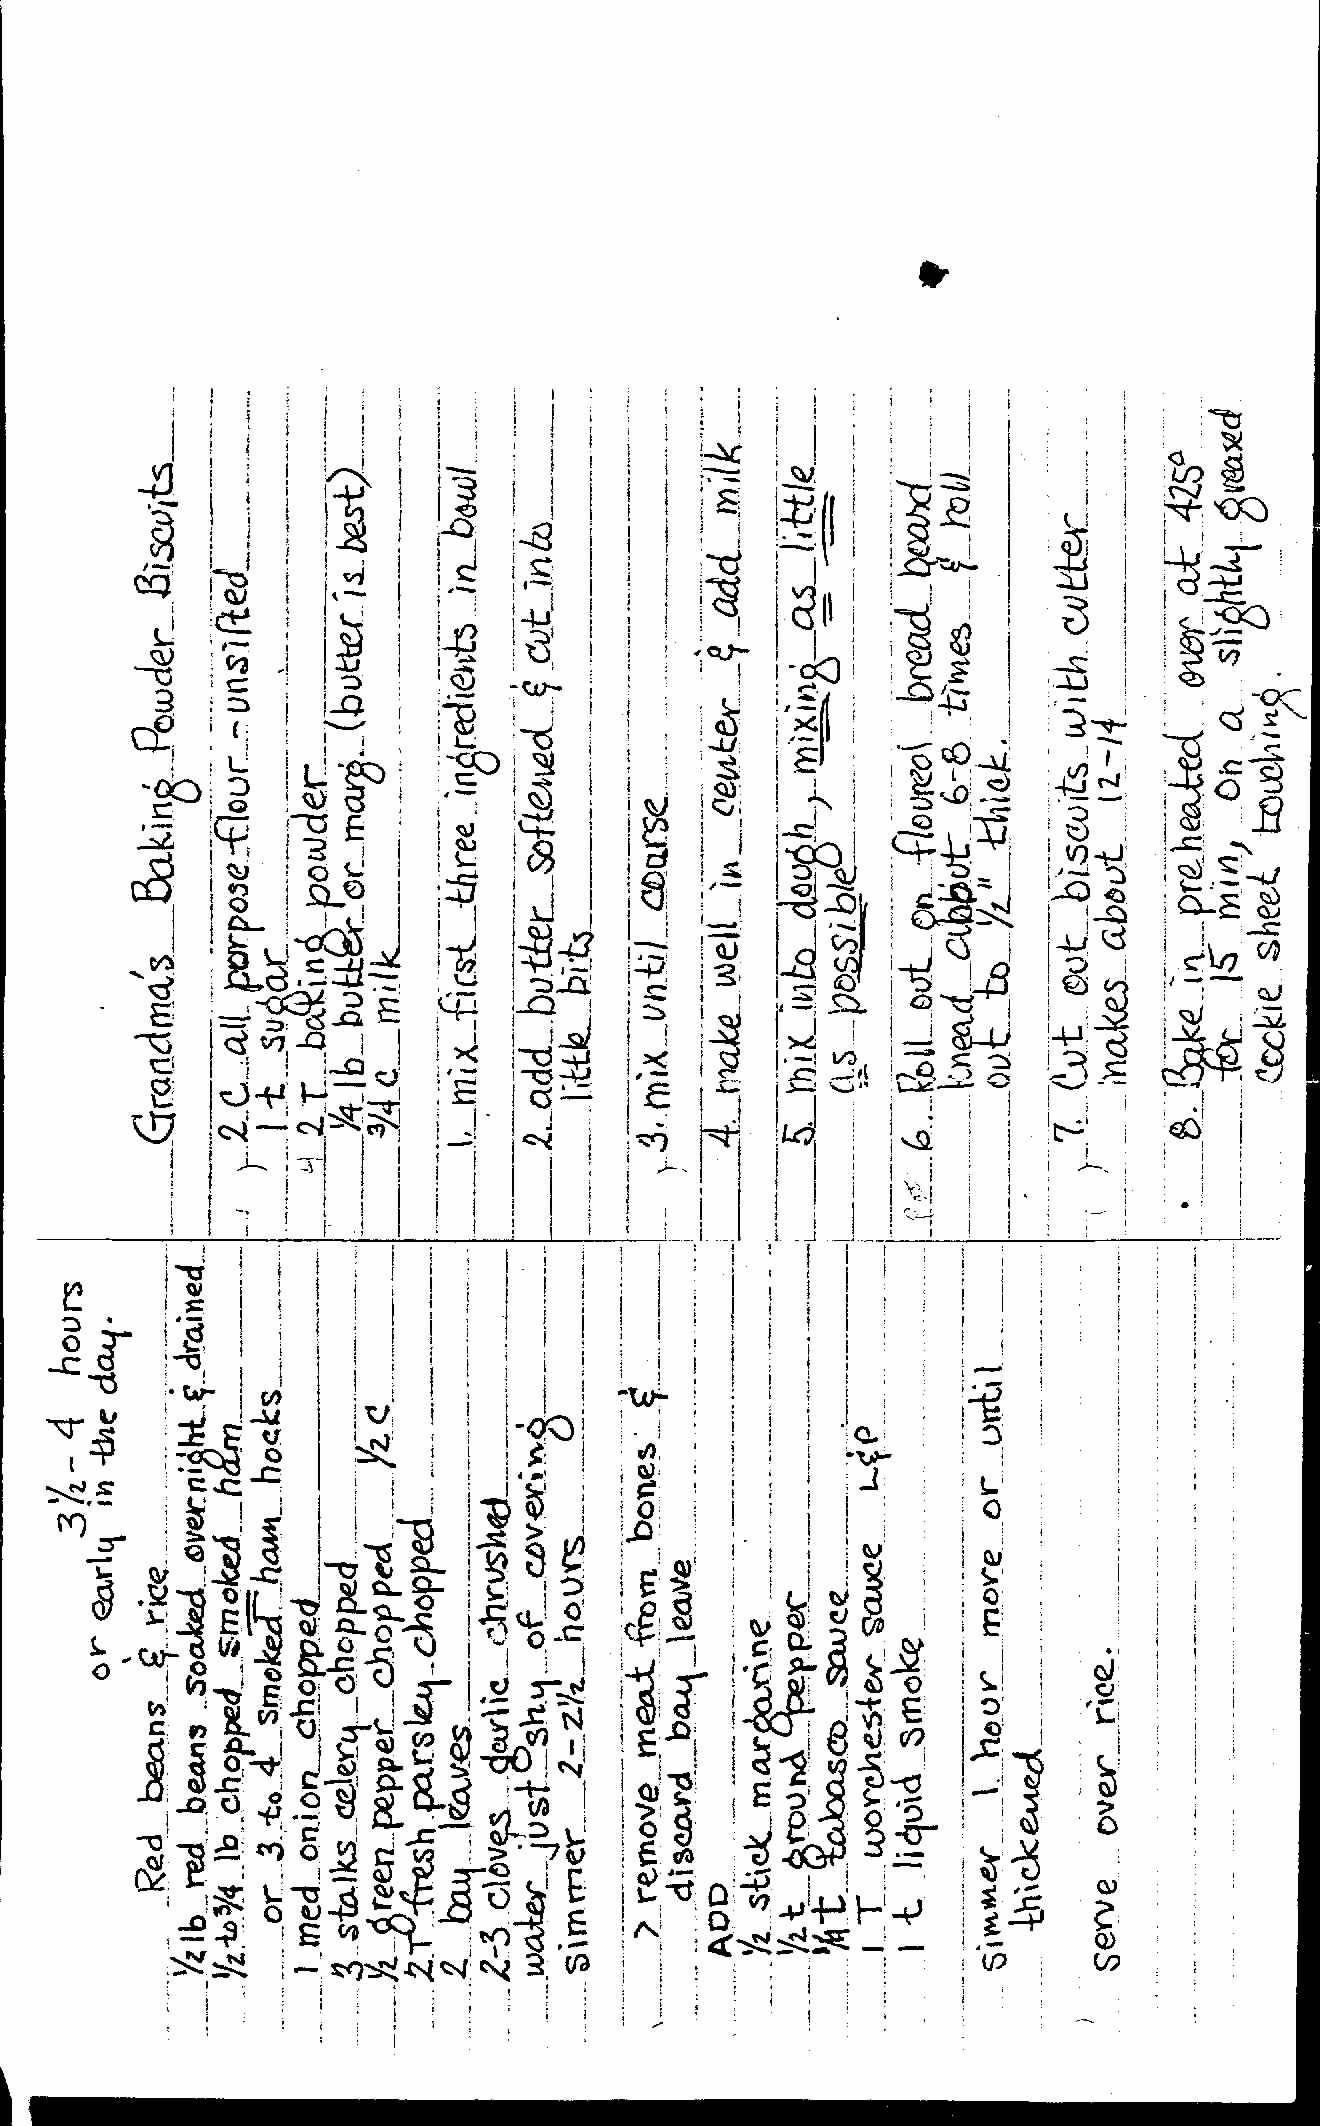 3½ - 4 hours
or early in the day.
Red beans & rice
½ lb red beans soaked overnight & drained
½ to ¾ lb chopped smoked ham
or 3 to 4 smoked ham hocks
1 med onion chopped
3 stalks celery chopped
½ green pepper chopped ½ C
2 T fresh parsley chopped
2 bay leaves
2-3 cloves garlic chrushed
water just shy of covering
simmer 2-2½ hours
> remove meat from bones &
discard bay leave
ADD
½ stick margarine
½ t ground pepper
¼ t tabasco sauce
1 T worchester sauce L&P
1 t liquid smoke
simmer 1 hour more or until
thickened
serve over rice.
Grandma's Baking Powder Biscuits
2 C all porpose flour - unsifted
1 t sugar
2 T baking powder
¼ lb butter or marg. (butter is best)
¾ C milk
1. mix first three ingredients in bowl
2. add butter softened & cut into
little bits
3. mix until coarse
4. make well in center & add milk
5. mix into dough, mixing as little
as possible
6. Roll out on floured bread board
knead about 6-8 times & roll
out to ½" thick.
7. Cut out biscuits with cutter
makes about 12-14
8. Bake in preheated over at 425°
for 15 min, on a slightly greased
cookie sheet touching.